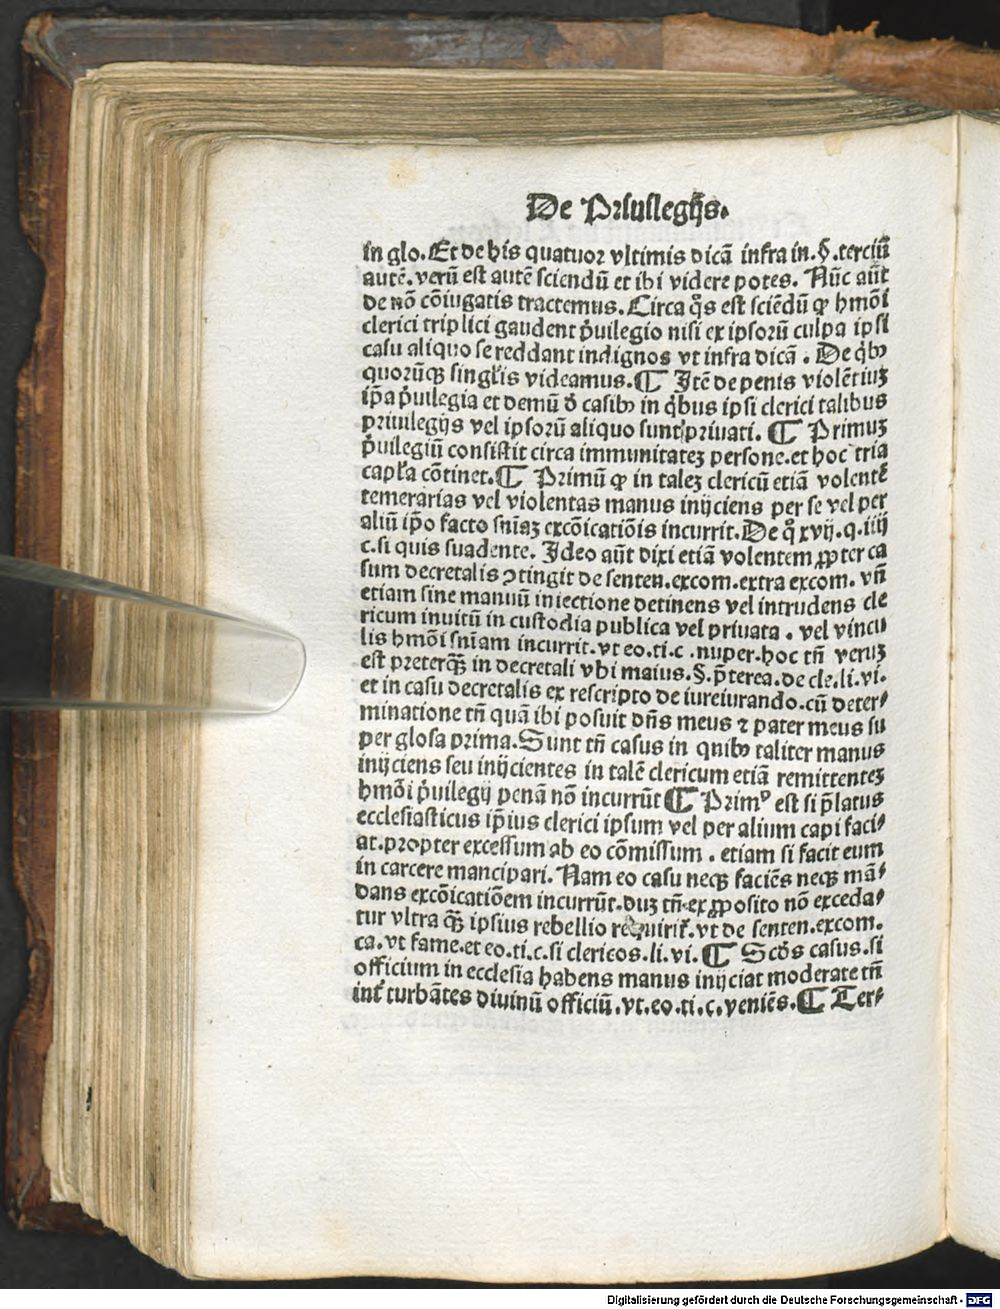 De Priuilegijs.
in glo. Et de his quatuor vltimis dicā infra in. §. terciū
autē. verū est autē sciendū et ibi videre potes. Nūc aūt
de nō cōiugatis tractemus. Circa qͦs est sciēdū ꝙ hmōi
clerici triplici gaudent p̄uilegio nisi ex ipsorū culpa ipsi
casu aliquo se reddant indignos vt infra dicā. De qͥbꝰ
quorūqꝫ singl̄is videamus. ¶ Itē de penis violētiuꝫ
ip̄a p̄uilegia et demū d̄ casibꝰ in qͥbus ipsi clerici talibus
priuilegijs vel ipsorū aliquo sunt priuati. ¶ Primuꝫ
p̄uilegiū consistit circa immunitateꝫ persone. et hoc tria
capl̄a cōtinet. ¶ Primū ꝙ in taleꝫ clericū etiā volentē
temerarias vel violentas manus inijciens per se vel per
aliū ip̄o facto sn̄iaꝫ excōicatiōis incurrit. De qͦ xvij. q. iiij
c. si quis suadente. Ideo aūt dixi etiā volentem ꝓpter ca
sum decretalis ꝯtingit de senten. excom. extra excom. vn̄
etiam sine manuū iniectione detinens vel intrudens cle
ricum inuitū in custodia publica vel priuata. vel vincu
lis hmōi sn̄iam incurrit. vt eo. ti. c. nuper. hoc tn̄ veruꝫ
est preterqꝫ̄ in decretali vbi maius. §. p̄terea. de cle. li. vi.
et in casu decretalis ex rescripto de iureiurando. cū deter⸗
minatione tn̄ quā ibi posuit dn̄s meus ⁊ pater meus su
per glosa prima. Sunt tn̄ casus in quibꝰ taliter manus
inijciens seu inijcientes in talē clericum etiā remittenteꝫ
hmōi p̄uilegij penā nō incurrūt ¶ Primꝰ est si p̄latus
ecclesiasticus ip̄ius clerici ipsum vel per alium capi faci⸗
at. propter excessum ab eo cōmissum. etiam si facit eum
in carcere mancipari. Nam eo casu neqꝫ faciēs neqꝫ mā⸗
dans excōicatiōem incurrūt. duꝫ tn̄ ex ꝓposito nō exceda⸗
tur vltra qꝫ̄ ipsius rebellio requirit̄. vt de senten. excom.
ca. vt fame. et eo. ti. c. si clericos. li. vi. ¶ Scd̄s casus. si
officium in ecclesia habens manus inijciat moderate tn̄
int̄ turbātes diuinū officiū. vt. eo. ti. c. veniēs. ¶ Ter⸗
Digitalisierung gefördert durch die Deutsche Forschungsgemeinschaft - DFG